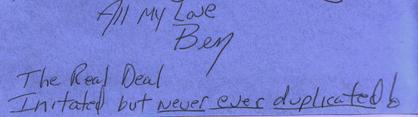 All My Love
Ben
The Real Deal
Imitated but never ever duplicated!